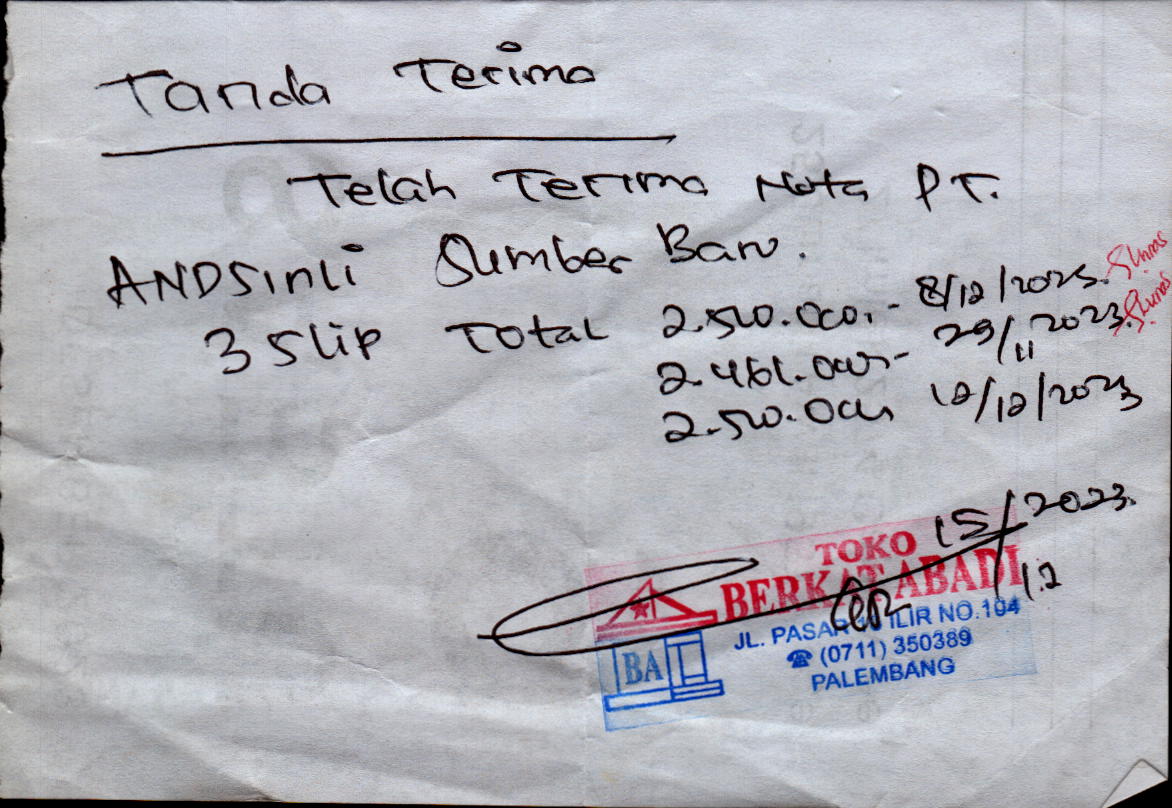 Tanda Terima
Telah Terima Nota PT.
ANDSinli Sumber Baru.
3 slip Total 2.500.000,- 8/12/2023. Lunas
2.461.000,- 29/11 2023. Lunas
2.500.000 12/12/2023
15/12 2023.
TOKO
BERKAT ABADI
BA
JL. PASAR ILIR NO.104
☎ (0711) 350389
PALEMBANG